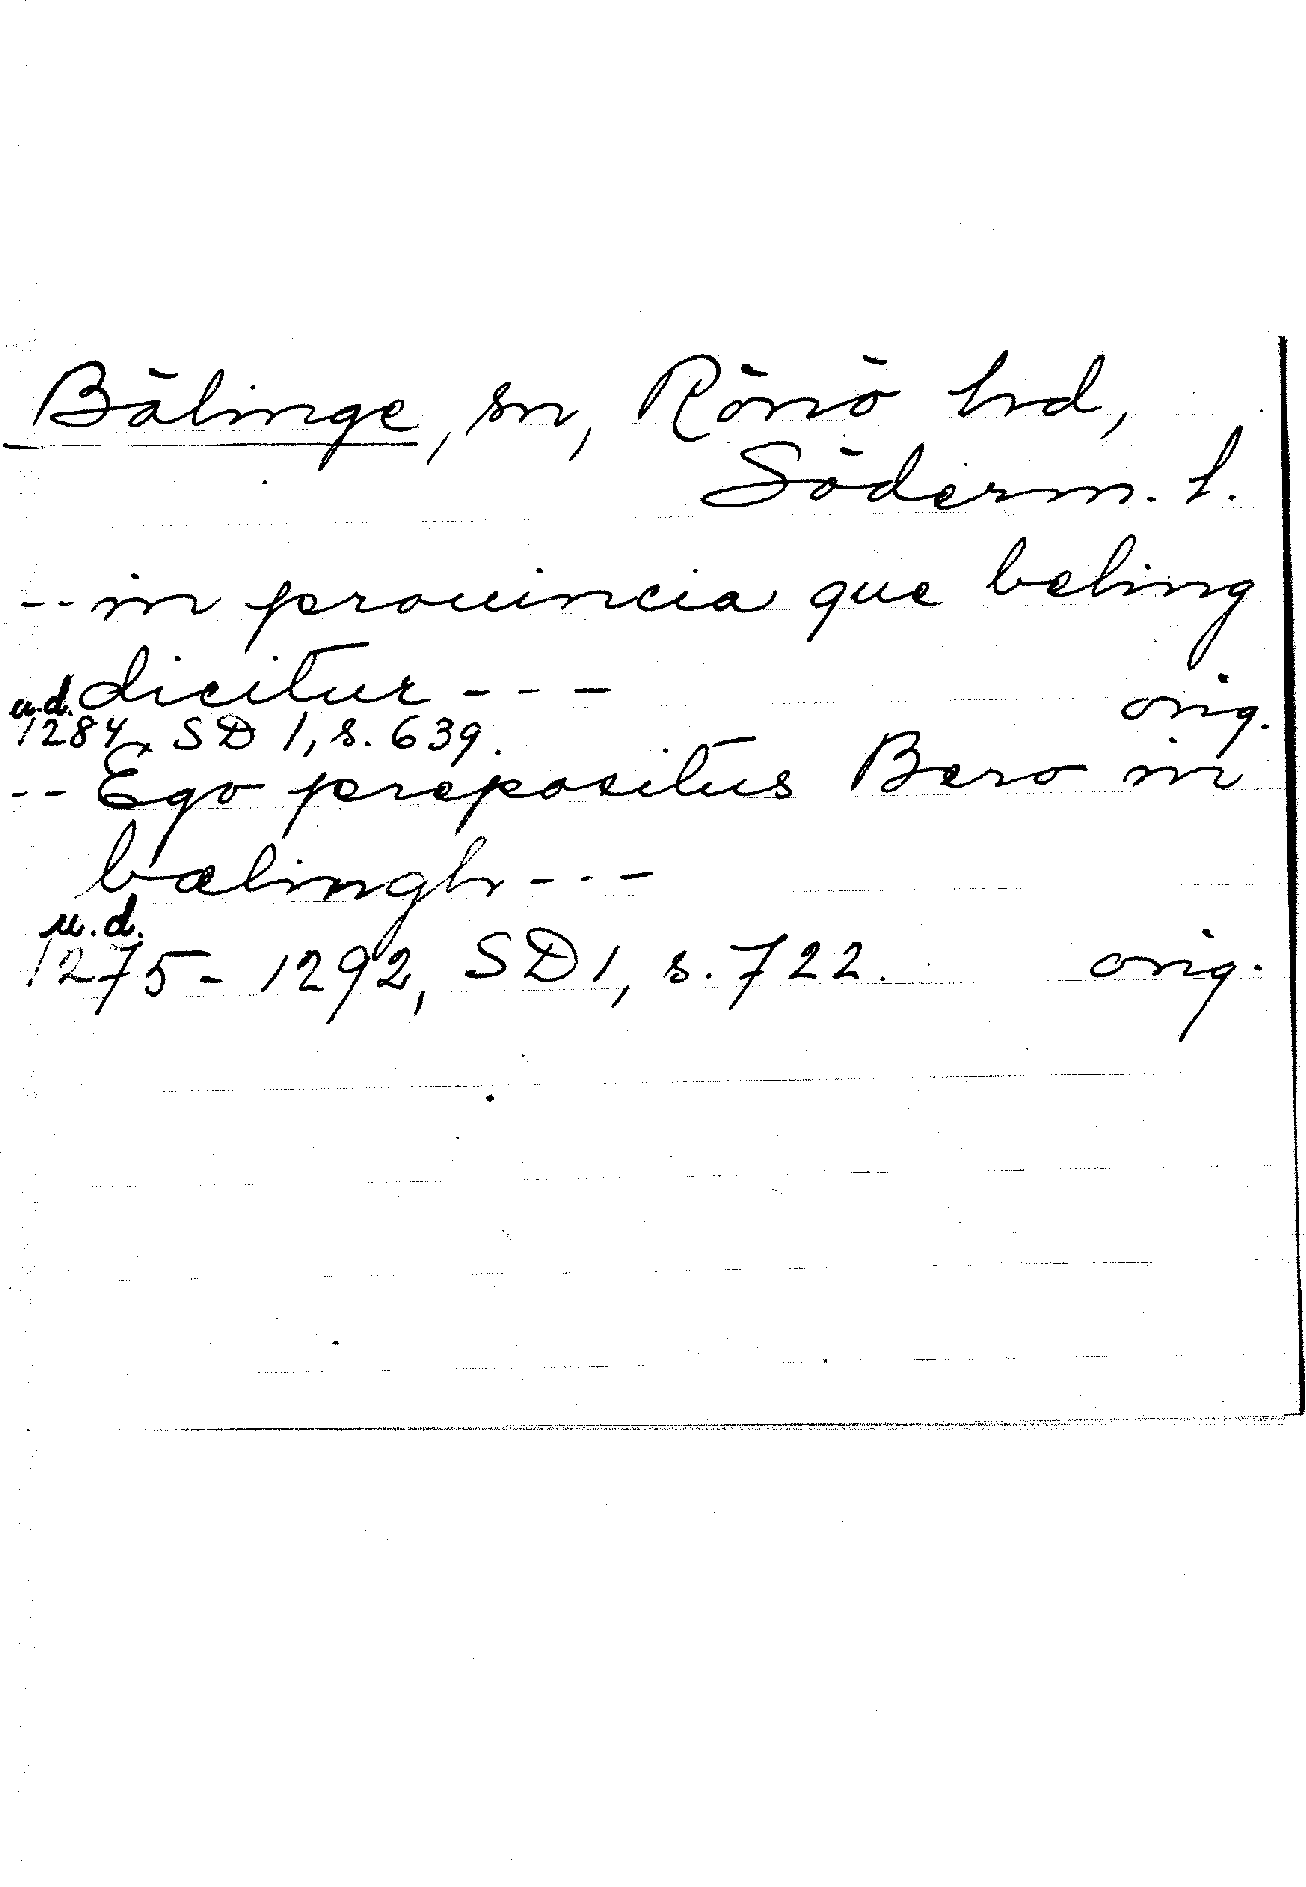 Bälinge, sn, Rönö hd,
Söderm. l.
-- in prouincia que beling
dicitur - - -
orig.
u.d.
1284, SD 1, s. 639.
-- Ego prepositus Bero in
bælingh - - -
u.d.
1275-1292, SD 1, s. 722. orig.